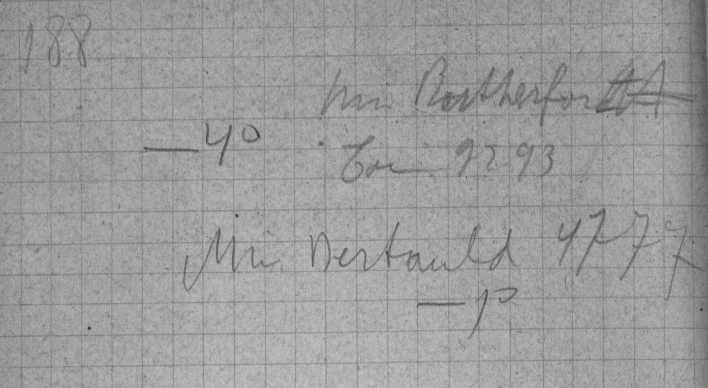 188
Mm Rutherford
—40
Com 9293
Mm. Bertauld 4777
—10